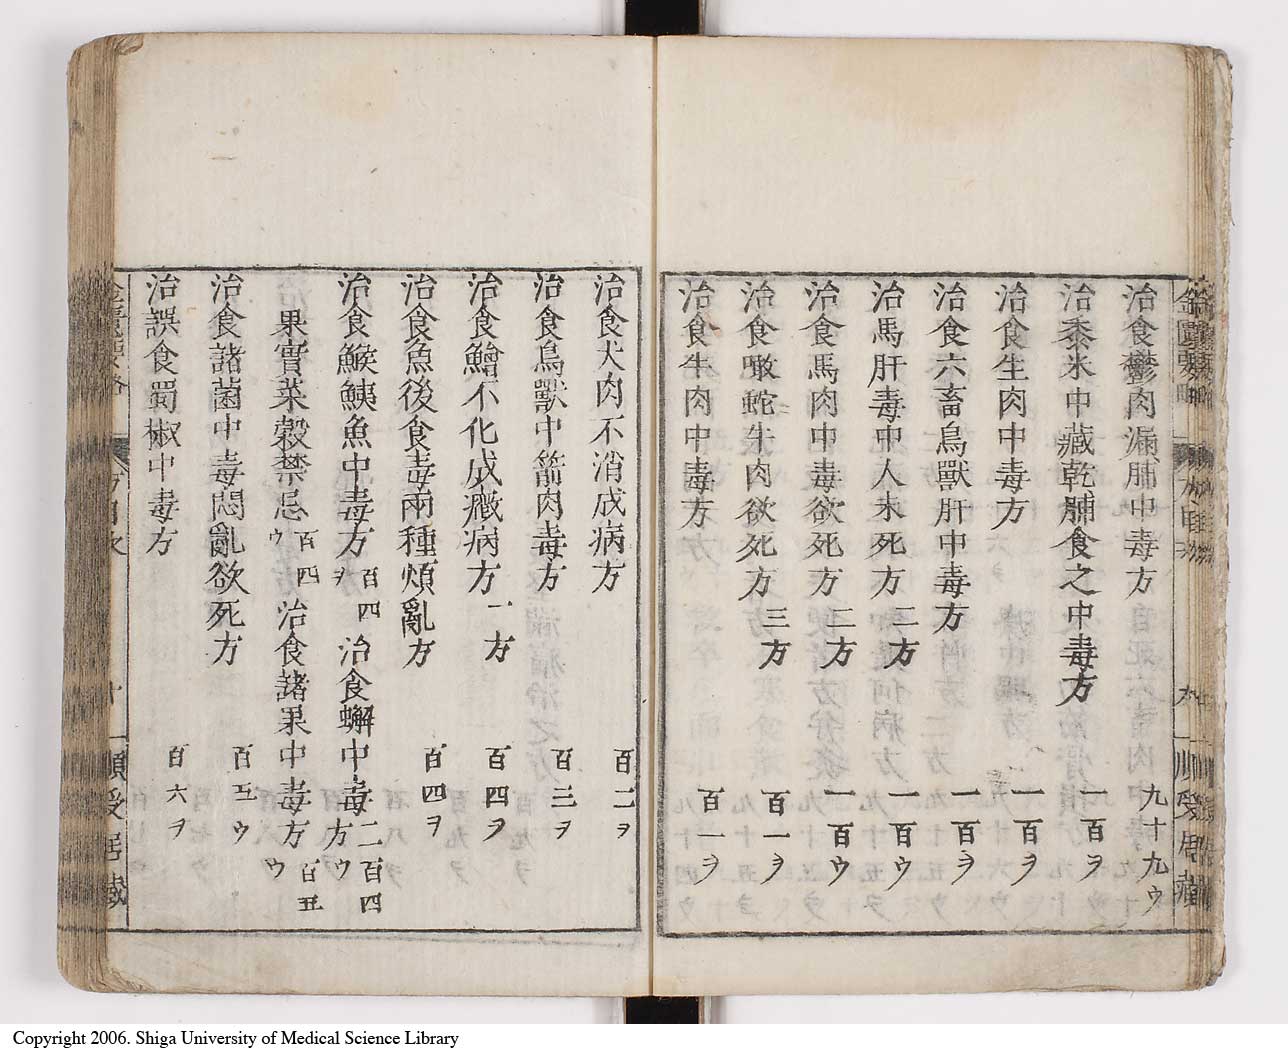 治食鬱肉漏脯中毒方 九十九ウ
治黍米中藏乾脯食之中毒方 一百ヲ
治食生肉中毒方 一百ヲ
治食六畜鳥獸肝中毒方 一百ヲ
治馬肝毒中人未死方 二方 一百ウ
治食馬肉中毒欲死方 二方 一百ウ
治食噉蛇牛肉欲死方 三方 百一ヲ
治食牛肉中毒方 百一ヲ
治食犬肉不消成病方 百二ヲ
治食鳥獸中箭肉毒方 百三ヲ
治食鱠不化成癥病方 一方 百四ヲ
治食魚後食毒兩種煩亂方 百四ヲ
治食鯸鮧魚中毒方 百四ヲ 治食蠏中毒方 二百四ウ
果實菜穀禁忌 百四ウ 治食諸果中毒方 百五ウ
治食諸菌中毒悶亂欲死方 百五ウ
治誤食蜀椒中毒方 百六ヲ
Copyright 2006. Shiga University of Medical Science Library